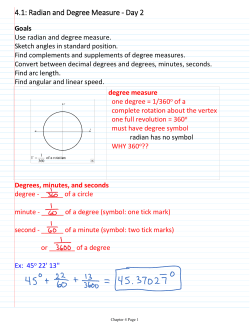 4.1: Radian and Degree Measure - Day 2
Goals
Use radian and degree measure.
Sketch angles in standard position.
Find complements and supplements of degree measures.
Convert between decimal degrees and degrees, minutes, seconds.
Find arc length.
Find angular and linear speed.
degree measure
one degree = 1/360° of a
complete rotation about the vertex
one full revolution = 360°
must have degree symbol
radian has no symbol
WHY 360°??
Degrees, minutes, and seconds
degree - 1/360 of a circle
minute - 1/60 of a degree (symbol: one tick mark)
second - 1/60 of a minute (symbol: two tick marks)
or 1/3600 of a degree
Ex: 45° 22' 13"
45° + 22/60 + 13/3600 = 45.37027°
Chapter 4 Page 1